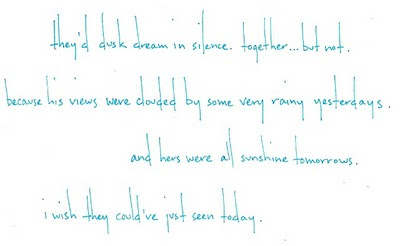 they'd dusk dream in silence. together...but not.
because his views were clouded by some very rainy yesterdays.
and hers were all sunshine tomorrows.
i wish they could've just seen today.